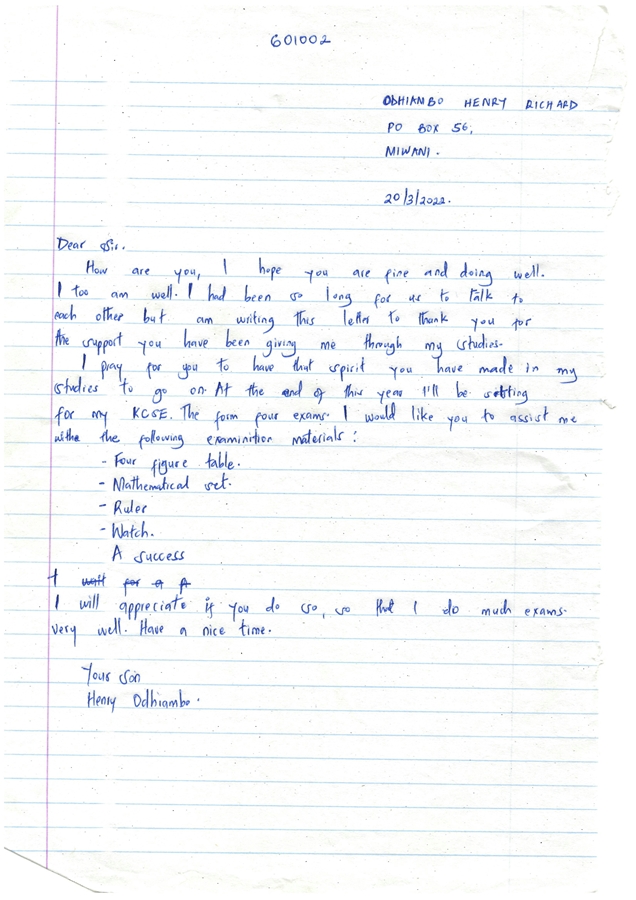 601002
ODHIANBO HENRY RICHARD
PO BOX 56,
MIWANI.
20/3/2022.
Dear Sir.
How are you, I hope you are fine and doing well.
I too am well. I had been so long for us to talk to
each other but am writing this letter to thank you for
the support you have been giving me through my studies.
I pray for you to have that spirit you have made in my
studies to go on. At the end of this year I'll be setting
for my KCSE. The form four exams. I would like you to assist me
withe the following examinition materials:
- Four figure table.
- Mathematical set.
- Ruler
- Watch.
A success
I wait for a A
I will appreciate if you do so, so that I do much exams.
very well. Have a nice time.
Your Son
Henry Odhiambo.